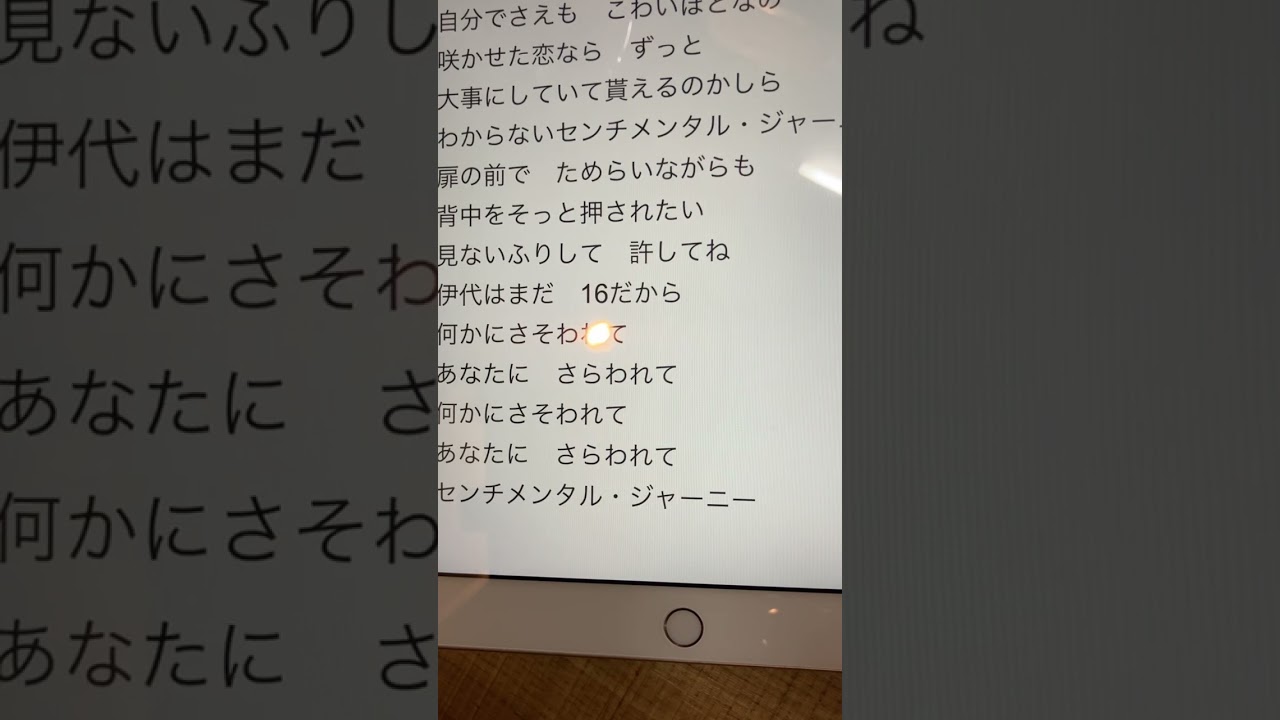 自分でさえも　こわいほどなの
咲かせた恋なら　ずっと
大事にしていて貰えるのかしら
わからないセンチメンタル・ジャー
扉の前で　ためらいながらも
背中をそっと押されたい
見ないふりして　許してね
伊代はまだ　16だから
何かにさそわれて
あなたに　さらわれて
何かにさそわれて
あなたに　さらわれて
センチメンタル・ジャーニー